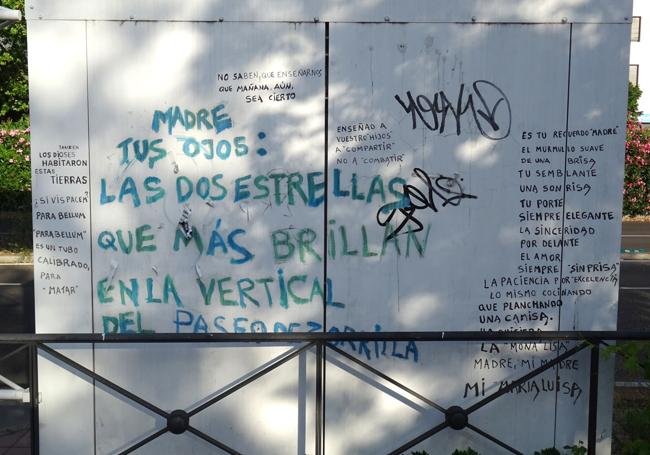 NO SABEN, QUE ENSEÑARNOS
QUE MAÑANA, AÚN,
SEA CIERTO
TAMBIEN
LOS DIOSES
HABITARON
ESTAS
TIERRAS
¿SI VIS PACEM?
PARA BELLUM
"PARABELLUM"
ES UN TUBO
CALIBRADO,
PARA
"MATAR"
MADRE
TUS OJOS:
LAS DOS ESTRELLAS
QUE MÁS BRILLAN
EN LA VERTICAL
DEL PASEO DE ZORRILLA
ENSEÑAD A
VUESTRO "HIJOS"
A "COMPARTIR"
NO A "COMBATIR"
ES TU RECUERDO "MADRE"
EL MURMULLO SUAVE
DE UNA BRISA
TU SEMBLANTE
UNA SONRISA
TU PORTE
SIEMPRE ELEGANTE
LA SINCERIDAD
POR DELANTE
EL AMOR
SIEMPRE "SIN PRISA"
LA PACIENCIA POR "EXCELENCIA"
LO MISMO COCINANDO
QUE PLANCHANDO
UNA CAMISA.
LA "MONA LISA"
MADRE, MI MADRE
MI MARIA LUISA